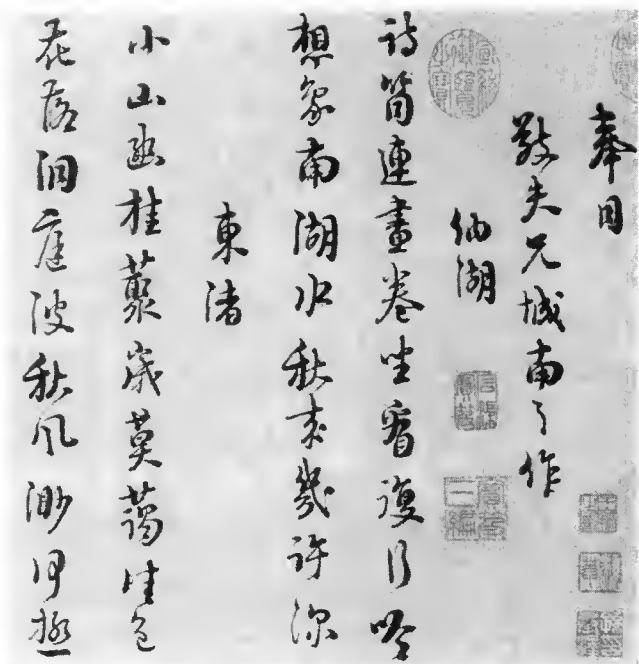 奉同
敬夫兄城南之作
納湖
詩筒連畫卷坐看復行吟
想象南湖水秋來幾許深
東渚
小山幽桂叢歲莫藹佳色
花落洞庭波秋風渺何極